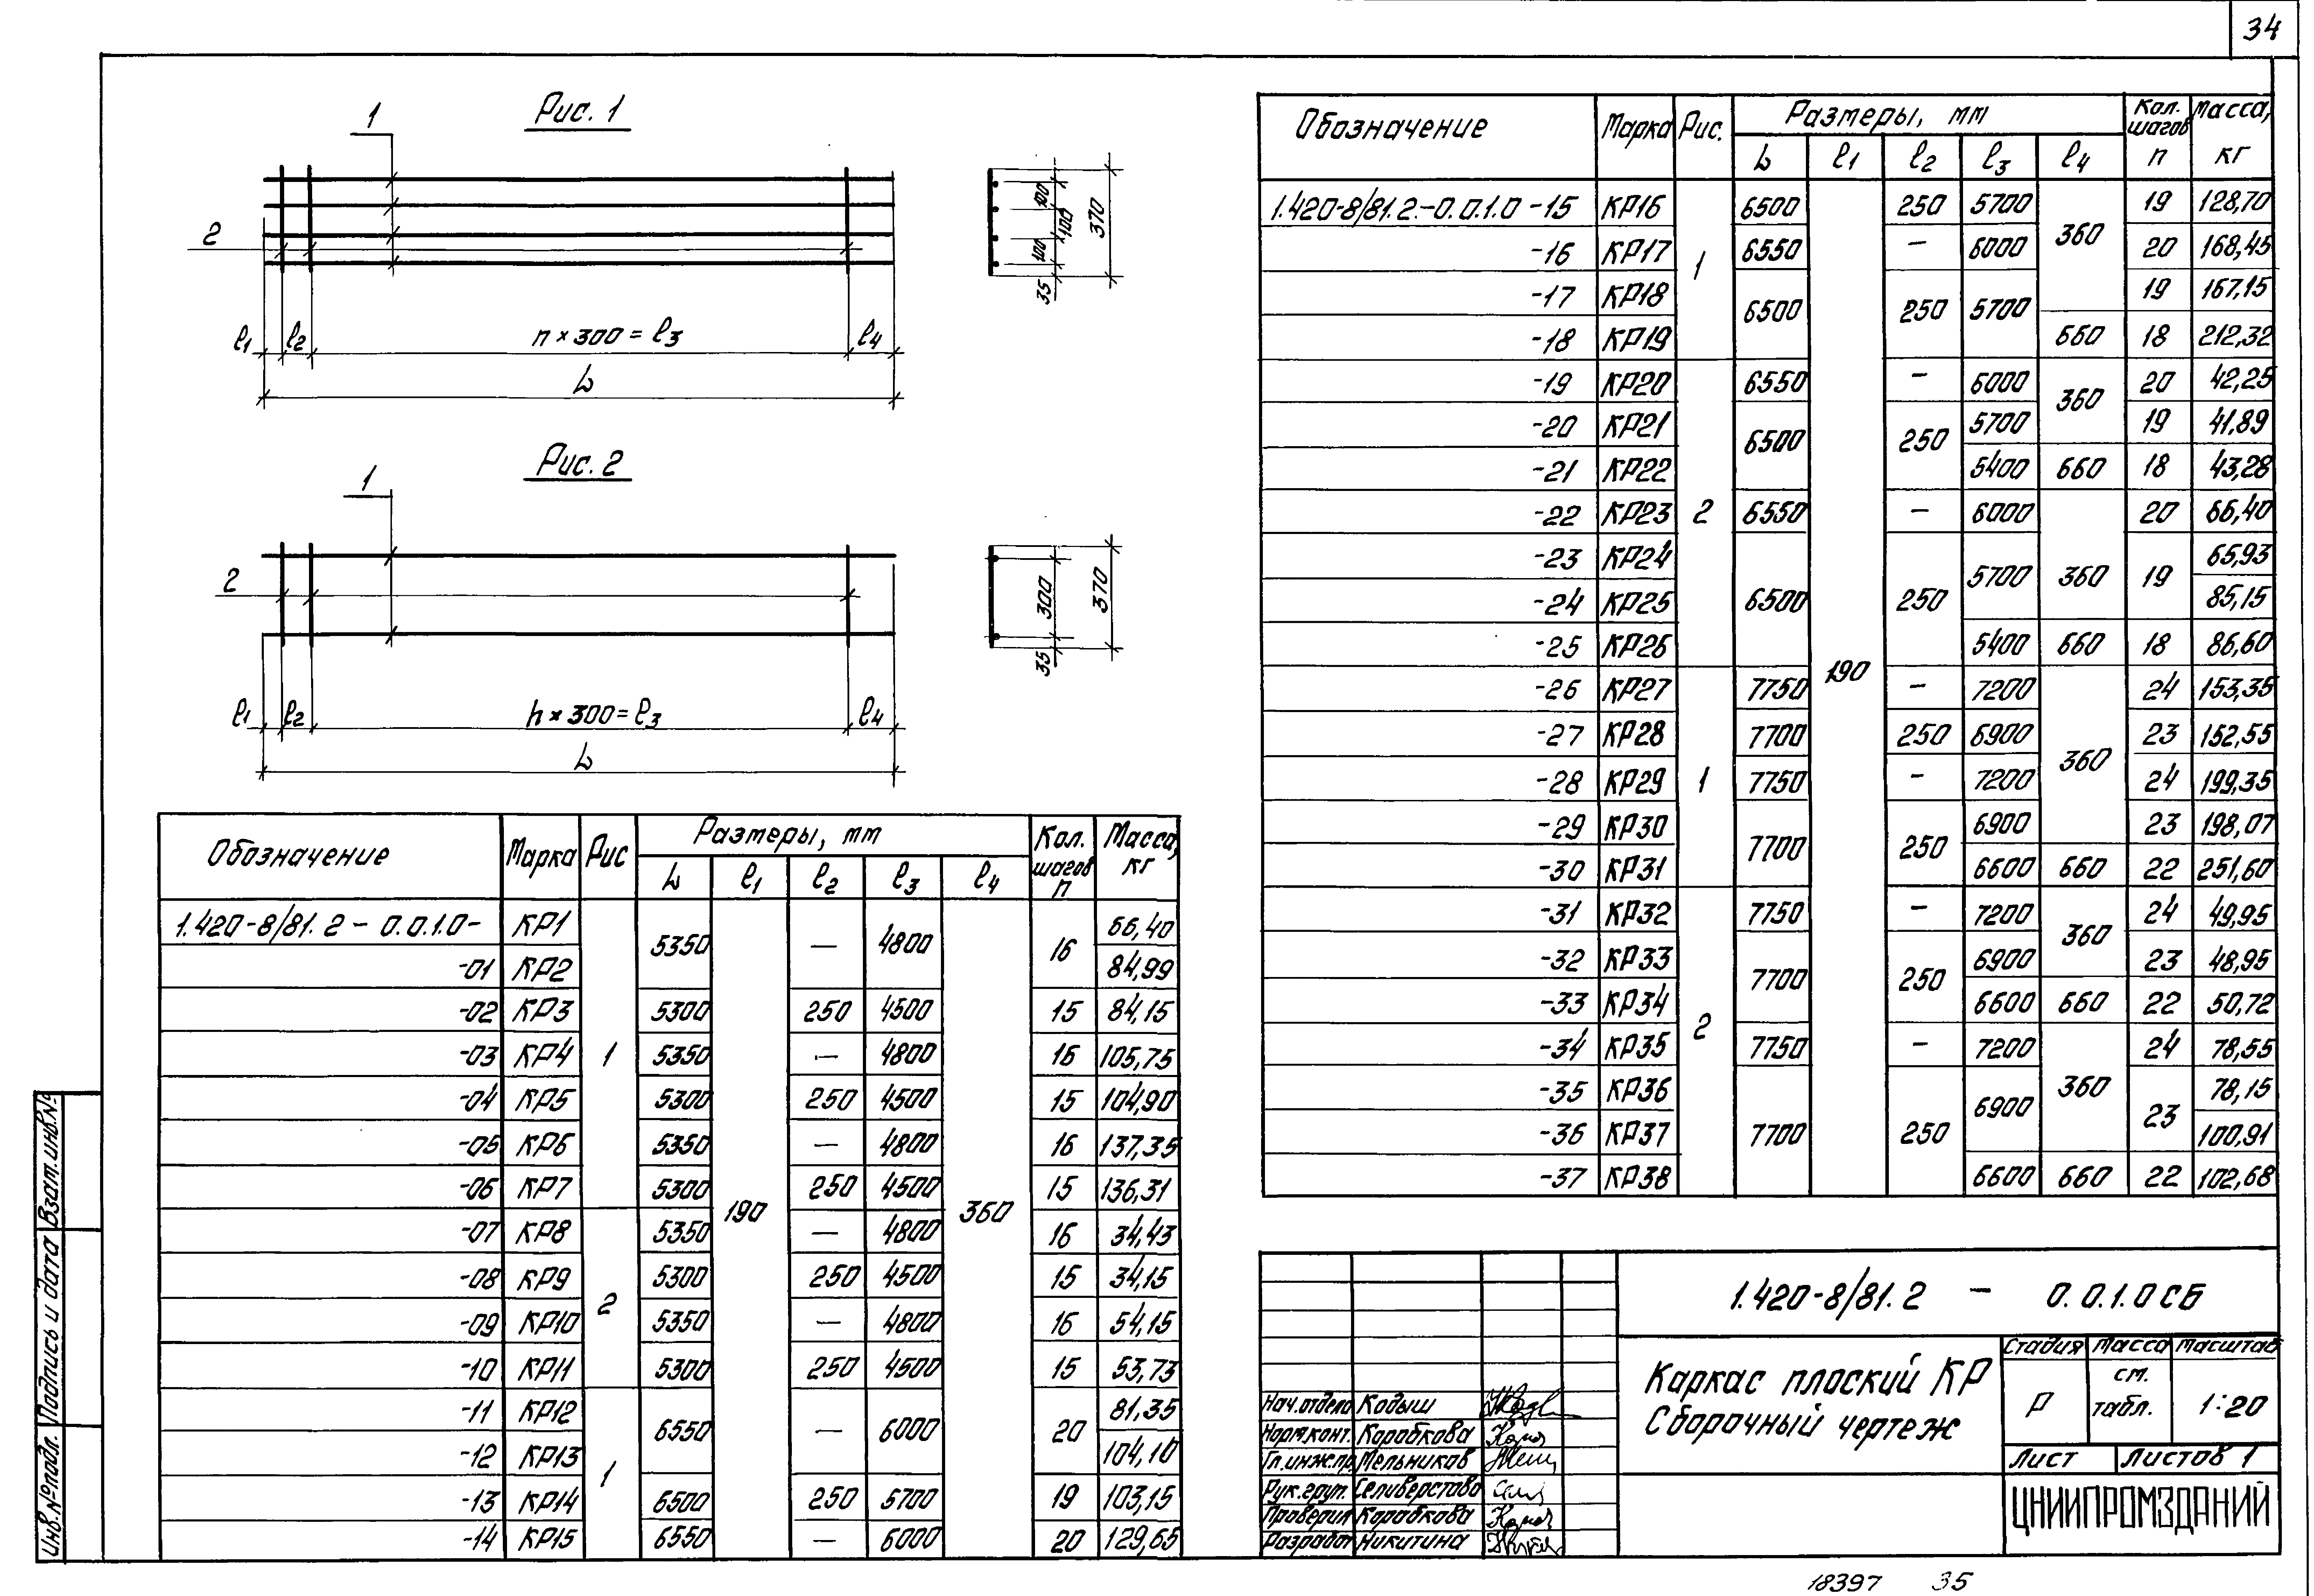 34
Рис. 1
1
2
l1 l2 n×300=l3 l4
L
100 100 100 35 370
Рис. 2
1
2
l1 l2 n×300=l3 l4
L
300 35 370
Обозначение Марка Рис Размеры, мм Кол. шагов n Масса, кг
L l1 l2 l3 l4
1.420-8/81.2-0.0.1.0- КР1 1 5350 190 — 4800 360 16 66,40
-01 КР2 84,99
-02 КР3 5300 250 4500 15 84,15
-03 КР4 5350 — 4800 16 105,75
-04 КР5 5300 250 4500 15 104,90
-05 КР6 5350 — 4800 16 137,35
-06 КР7 5300 250 4500 15 136,31
-07 КР8 2 5350 — 4800 16 34,43
-08 КР9 5300 250 4500 15 34,15
-09 КР10 5350 — 4800 16 54,15
-10 КР11 5300 250 4500 15 53,73
-11 КР12 1 6550 — 6000 20 81,35
-12 КР13 104,10
-13 КР14 6500 250 5700 19 103,15
-14 КР15 6550 — 6000 20 129,65
Обозначение Марка Рис. Размеры, мм Кол. шагов n Масса, кг
L l1 l2 l3 l4
1.420-8/81.2.-0.0.1.0 -15 КР16 1 6500 190 250 5700 360 19 128,70
-16 КР17 6550 — 6000 20 168,45
-17 КР18 6500 250 5700 19 167,15
-18 КР19 660 18 212,32
-19 КР20 2 6550 — 6000 360 20 42,25
-20 КР21 6500 250 5700 19 41,89
-21 КР22 5400 660 18 43,28
-22 КР23 6550 — 6000 360 20 66,40
-23 КР24 6500 250 5700 19 65,93
-24 КР25 85,15
-25 КР26 5400 660 18 86,60
-26 КР27 1 7750 — 7200 360 24 153,35
-27 КР28 7700 250 6900 23 152,55
-28 КР29 7750 — 7200 24 199,35
-29 КР30 7700 250 6900 23 198,07
-30 КР31 6600 660 22 251,60
-31 КР32 2 7750 — 7200 360 24 49,95
-32 КР33 7700 250 6900 23 48,95
-33 КР34 6600 660 22 50,72
-34 КР35 7750 — 7200 360 24 78,55
-35 КР36 7700 250 6900 23 78,15
-36 КР37 100,91
-37 КР38 6600 660 22 102,68
1.420-8/81.2 — 0.0.1.0СБ
Каркас плоский КР
Сборочный чертеж
Стадия Масса Масштаб
Р см. табл. 1:20
Лист Листов 1
ЦНИИПРОМЗДАНИЙ
Нач.отдела Кодыш
Норм.конт. Коробкова
Гл.инж.пр. Мельников
Рук.груп. Селиверстова
Проверил Коробкова
Разработ Никитина
Взам.инв.№
Подпись и дата
Инв.№подл.
18397 35